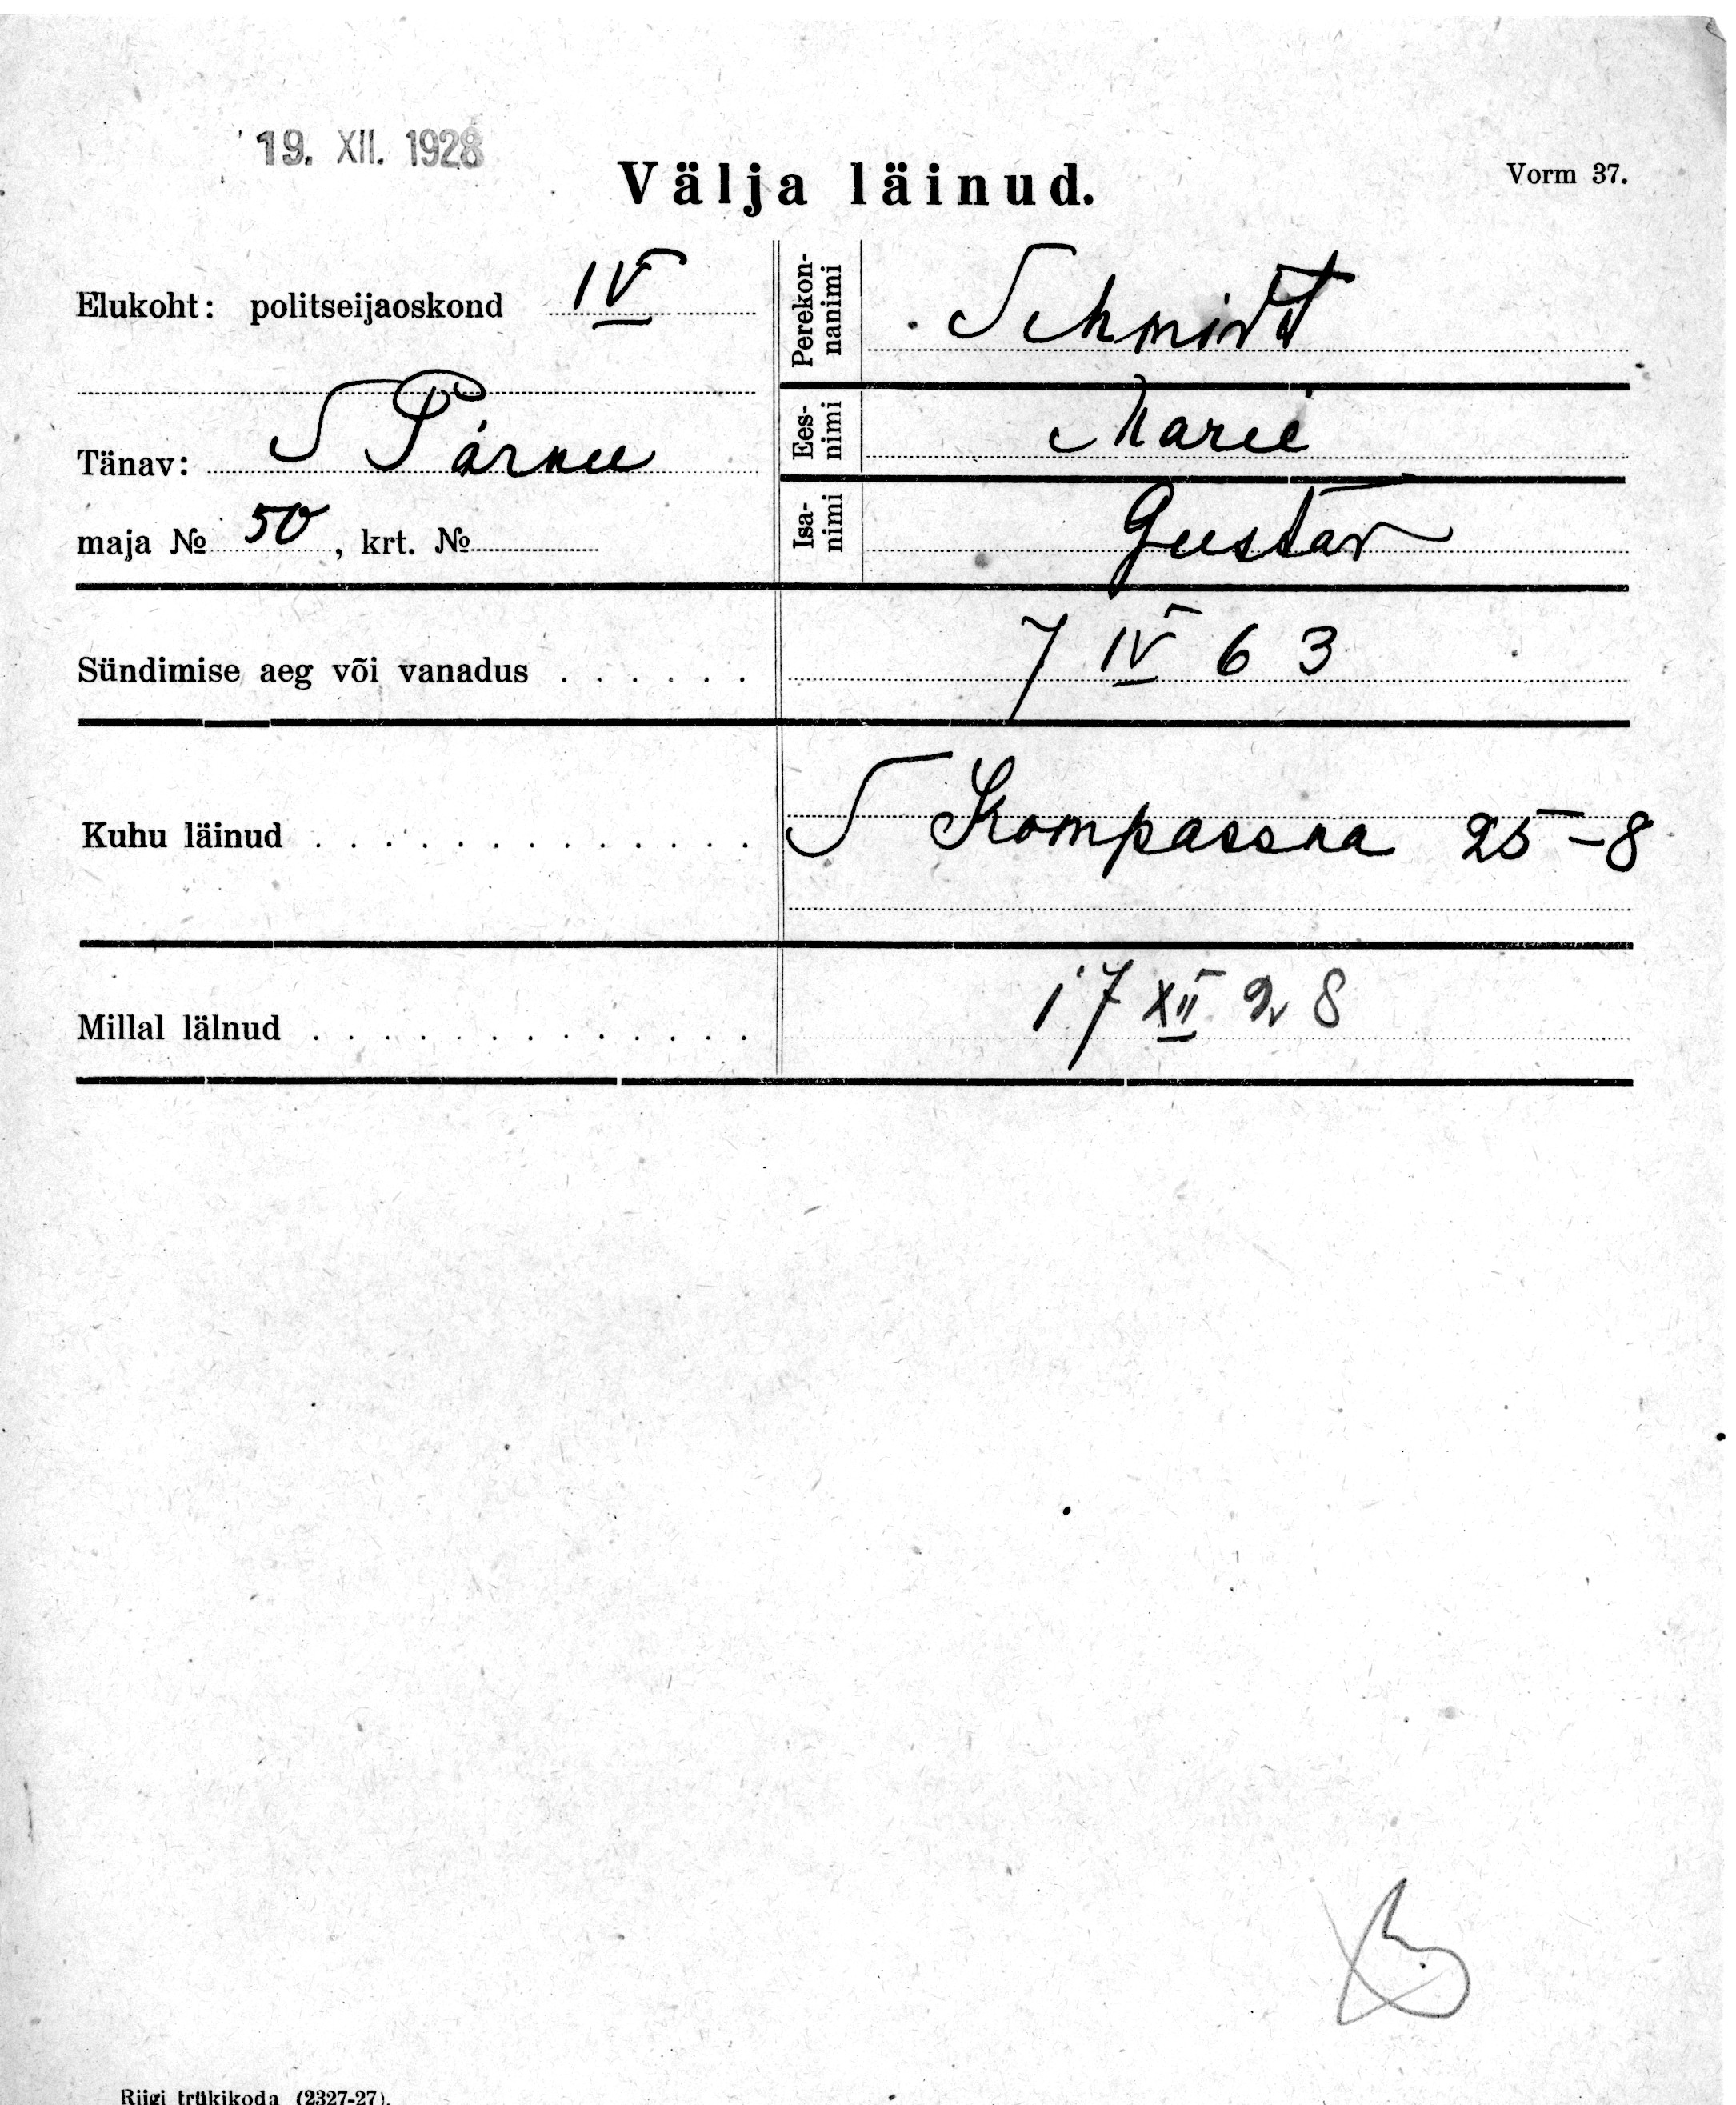 19. XII. 1928
Välja läinud.
Vorm 37.
Elukoht: politseijaoskond IV
Tänav: S Pärnu
maja № 50, krt. №
Perekon-
nanimi
Schmidt
Ees-
nimi
Marie
Isa-
nimi
Gustav
Sündimise aeg või vanadus . . . . . . 7 IV 63
Kuhu läinud . . . . . . . . . . . . . S Kompassna 25-8
Millal lälnud . . . . . . . . . . . . . 17 XII 28
Riigi trükikoda (2327-27).